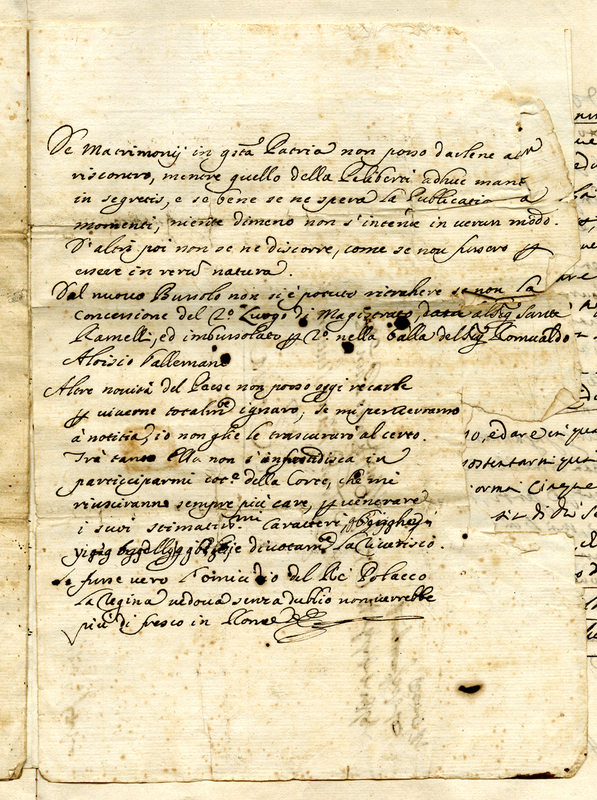 De Matrimonij in qsta Patria non posso darlene altr
riscontro, mentre quello della Peliberti adhuc mant
in segretis, e se bene se ne spera la Publicatio a
momenti, niente dimeno non s'intende in verun modo.
D'altri poi non se ne discorre, come se non fussero p
essere in rerũ natura.
Dal nuovo Bussolo non si è potuto ritrahere se non la
Concessione del 2.º Luogo di Magistrato, data al Sigr Sante
Ramelli, ed imbussolato p 2.º nella Palla del Sigr Romualdo
Aloisio Vallemani
Altre novità del Paese non posso oggi recarle
p viverne totalmte ignaro, se mi perveranno
à notitia, io non glie le trascurarò al certo.
Trà tanto Ella non s'infastidisca in
participarmi cote della Corte, che mi
riusciranno sempre più care, p venerare
i suoi stimatismi Caratteri,
divotamte La riverisco.
Se fusse vero l'omicidio del Rè Polacco
La Regina vedova senza dubio non verrebbe
più di fresco in Roma
no, ed are in qua
sostentarmi qua
orma Cinque